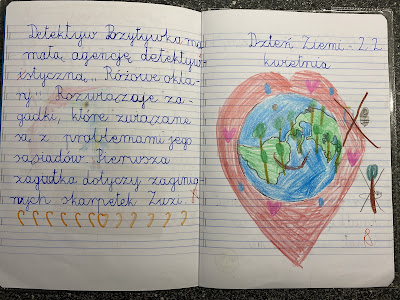 Detektyw Bzytywka ma
małą agencję detektyw-
istyczną „Różowe okla-
ry". Rozwiązuje za-
gadki, które związane
są z problemami jego
sąsiadów. Pierwsza
zagadka dotyczy zaginio-
nych skarpetek Zuzi.
Dzień Ziemi - 22
kwietnia